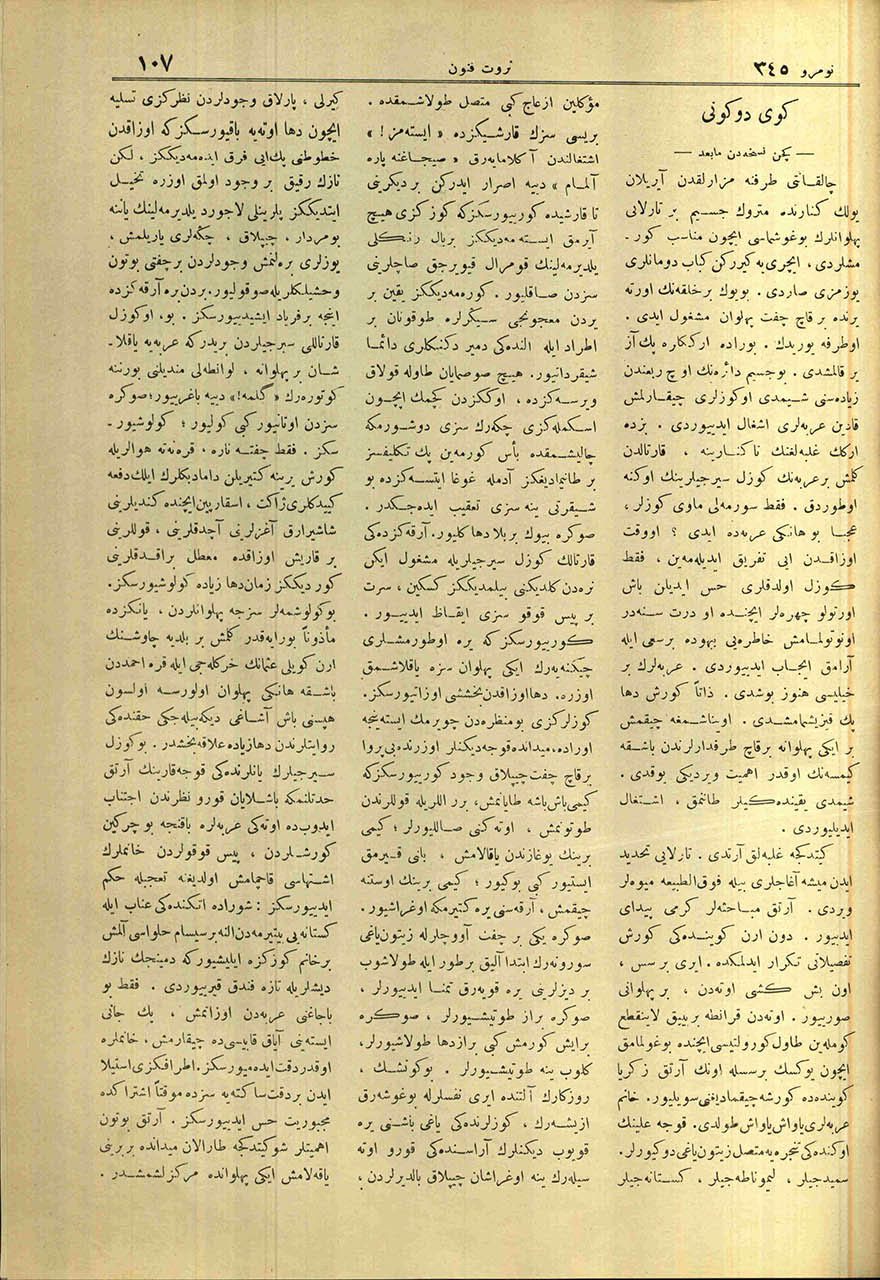 نومرو ٣٤٥
ثروت فنون
١٠٧
كوی دوكونی
— پكن نسخه‌دن مابعد —
چالقانتی طرفنه مزارلقدن آیریلان
یولك كنارنده متروك جسیم بر تارلایی
پهلوانلرك بوغوشماسی ایچون مناسب كور-
مشلردی ، ایچری‌یه كیرركن كباب دومانلری
یوزمزی صاردی . بویوك بر خلقه‌نك اورته
یرنده بر قاچ جفت پهلوان مشغول ایدی .
اوطرفه یوریدك . بوراده ارككلره پك آز
یر قالمشدی . بوجسیم دائره‌نك اوچ ربعندن
زیاده‌سنی شیمدی اوكوزلری چیقارلمش
قادین عربه‌لری اشغال ایدییوردی . بزده
اركك غلبه‌لغنك تا كنارینه ، قارتالدن
كلمش بر عربه‌نك كوزل سیرجیلرینك اوكنه
اوطوردق . فقط سورمه‌لی ماوی كوزلر ،
عجبا بو هانكی عربه‌ده ایدی ؟ اووقت
اوزاقدن ایی تفریق ایدیله‌مه‌ین ، فقط
كوزل اولدقلری حس ایدیلن باش
اورتولو چهره‌لر ایچنده او درت سنه‌در
اونوتولمامش خاطره‌یی بیهوده بر سعی ایله
آرامق ایجاب ایدییوردی . عربه‌لرك بر
خیلیسی هنوز بوشدی . ذاتاً كورش دها
پك قیزیشمامشدی . اویناشمغه چیقمش
بر ایكی پهلوانه بر قاچ طرفدارلرندن باشقه
كیمسه‌نك اوقدر اهمیت ویردیكی یوقدی .
شیمدی یقینده‌كیلر طانمق ، اشتغال
ایدیلیوردی .
كیتدكجه غلبه‌لق آرتدی . تارلایی تحدید
ایدن میشه آغاجلری بیله فوق‌الطبیعه میوه‌لر
ویردی . آرتق مباحثه‌لر كرمی پیدای
ایدییور . دون ارن كوینده‌كی كورش
تفصیلاتی تكرار ایدلمكده . ایری بر سس ،
اون بش كشی اوته‌دن ، بر پهلوانی
صورییور . اوته‌دن قرانطه بر بییق لاینقطع
كومله‌ین طاول كورولتیسی ایچنده بوغولمامق
ایچون یوكسك بر سسله اونك آرتق زكریا
كوینده‌ده كورشه چیقمادیغنی سویلیور. خانم
عربه‌لری یاواش یاواش طولدی . قوجه علینك
اوكنده‌كی تنجره‌یه متصل زیتون یاغی دوكیورلر.
سمیدجیلر ، لیموناطه‌جیلر ، كستانه‌جیلر
مؤكلین ازعاج كبی متصل طولاشمقده .
بریسی سزك قارشیكزده « ایسته‌مز ! »
اشتغالندن آكلامایه‌رق « صیجاغنه پاره
آلمام » دییه اصرار ایدركن بر دیكرینی
تا قارشیده كورییورسكزكه كوزكزی هیچ
آیرمق ایسته‌مه‌دیككز بر بال رنكلی
یلدیرمه‌لینك قومرال قیویرجق صاچلرینی
سزدن صاقلیور . كوره‌مه‌دیككز یقین بر
یردن معجونجی سیكرلره طوقونان بر
اطراد ایله النده‌كی دمیر دكنكلری دائما
شیقردانیور. هیچ صوصمایان طاوله قولاق
ویرسه‌كزده ، اوككزدن كچمك ایچون
اسكمله‌كزی چكه‌رك سزی دوشورمكه
چالیشمقده بأس كورمه‌ین پك تكلیفسز
بر طانیمادیغكز آدمله غوغا ایتسه‌كزده بو
شیقرتی ینه سزی تعقیب ایده‌جكدر .
صوكره بیوك بر بلا دها كلیور. آرقه‌كزده‌كی
قارتالك كوزل سیرجیلریله مشغول ایكن
نره‌دن كلدیكنی بیلمدیككز كسكین ، سرت
بر پیس قوقو سزی ایقاظ ایدییور .
كورییورسكز كه یره اوطورمشلری
چیكنه‌یه‌رك ایكی پهلوان سزه یاقلاشمق
اوزره. دها اوزاقدن بخششی اوزاتیورسكز.
كوزلركزی بو منظره‌دن چویرمك ایسته‌ینجه
اوراده، میدانده قوجه دیكنلر اوزرنده بی پروا
بر قاچ جفت چیپلاق وجود كورییورسكزكه
كیمی باش باشه طایانمش، بربر اللریله قوللرندن
طوتونمش ، اوته‌كنی صاللیورلر ؛ كیمی
برینك بوغازندن یاقالامش ، بانی قیرمق
ایستیور كبی بوكیور ؛ كیمی برینك اوستنه
چیقمش ، آرقه‌سنی یره كتیرمكه اوغراشیور.
صوكره یكی بر جفت آووجلرله زیتون یاغی
سورونه‌رك ابتدا آلیق بر طور ایله طولاشوب
بر دیزلرینی یره قویه‌رق تمنا ایدییورلر ،
صوكره براز طوتیشیورلر ، صوكره
بر ایش كورمش كبی برازدها طولاشیورلر،
كلوب ینه طوتیشیورلر . بوكونشك ،
روزكارك آلتنده ایری نفسلرله بوغوشه‌رق
ازیشه‌رك ، كوزلرنده‌كی یاغی باشنی یره
قویوب دیكنلرك آراسنده‌كی قورو اوته
سیله‌رك ینه اوغراشان چیپلاق بالدیرلردن ،
كیرلی ، پارلاق وجودلردن نظركزی تسلیه
ایچون دها اوته‌یه باقیورسكزكه اوزاقدن
خطوطنی پك ایی فرق ایده‌مه‌دیككز ، لكن
نازك رقیق بر وجود اولمق اوزره تخیل
ایتدیككز پارینلی لاجورد یلدیرمه‌لینك یاننه
یومردار ، چیپلاق ، چكه‌لری یاریلمش ،
یوزلری بره‌لنمش وجودلردن بر جفتی بوتون
وحشیلكلریله صوقولیور. بردن بره آرقه‌كزده
اینجه بر فریاد ایشیدییورسكز . بو، اوكوزل
قارتاللی سیرجیلردن بریدركه عربه‌یه یاقلا-
شان بر پهلوانه ، لوانطه‌لی مندیلنی بورننه
كوتوره‌رك « كلمه!» دییه باغرییور؛ صوكره
سزدن اوتانیور كبی كولیور ؛ كولوشیور-
سكز . فقط چفته ناره ، قره‌نه‌ته هوالریله
كورش یرینه كتیریلن دامادیكلرك ایلك دفعه
كییدكلری ژاكت ، اسقارپین ایچنده كندیلرینی
شاشیرارق آغزلرینی آچدقلرینی ، قوللرینی
بر قاریش اوزاقده معطل براقدقلرینی
كوردیككز زمان دها زیاده كولوشیورسكز.
بوكولوشمه‌لر سزجه پهلوانلردن ، یانكزده
مأذوناً بورایه‌قدر كلمش بر بلدیه چاوشنك
ارن كویلی عثمانك خركله‌جی ایله قره احمددن
باشقه هانكی پهلوان اولورسه اولسون
هپسنی باش آشاغی دیكه‌بیله‌جكی حقنده‌كی
روایتلرندن دها زیاده علاقه بخشدر . بوكوزل
سیرجیلرك یانلرنده‌كی قوجه قارینك آرتق
حدتلنمكه باشلایان قورو نظرندن اجتناب
ایدوب ده اوته‌كی عربه‌لره باقنجه بوچركین
كورشلردن ، پیس قوقولردن خانملرك
اشتهاسی قاچمامش اولدیغنه تعجبله حكم
ایدییورسكز : شوراده اتكنده‌كی عناب ایله
كستانه‌یی بیتیرمه‌دن النه بر سیسام حلواسی آلمش
بر خانم كوزكزه ایلیشیوركه دمینجك نازك
دیشلریله تازه فندق قیرییوردی . فقط بو
باجاغنی عربه‌دن اوزاتمش ، پك جانی
ایسته‌ینی آیاق قابیسی‌ده چیقارمش ، خانملره
اوقدر دقت ایده‌میورسكز. اطرافكزی استیلا
ایدن بر دقت ساكته‌یه سزده موقتاً اشتراك‌ده
مجبوریت حس ایدییورسكز . آرتق بوتون
اهمیتلر شو كیتدكجه طارالان میدانده بربرینی
یاقه‌لامش ایكی پهلوانده مركزلشمشدر .